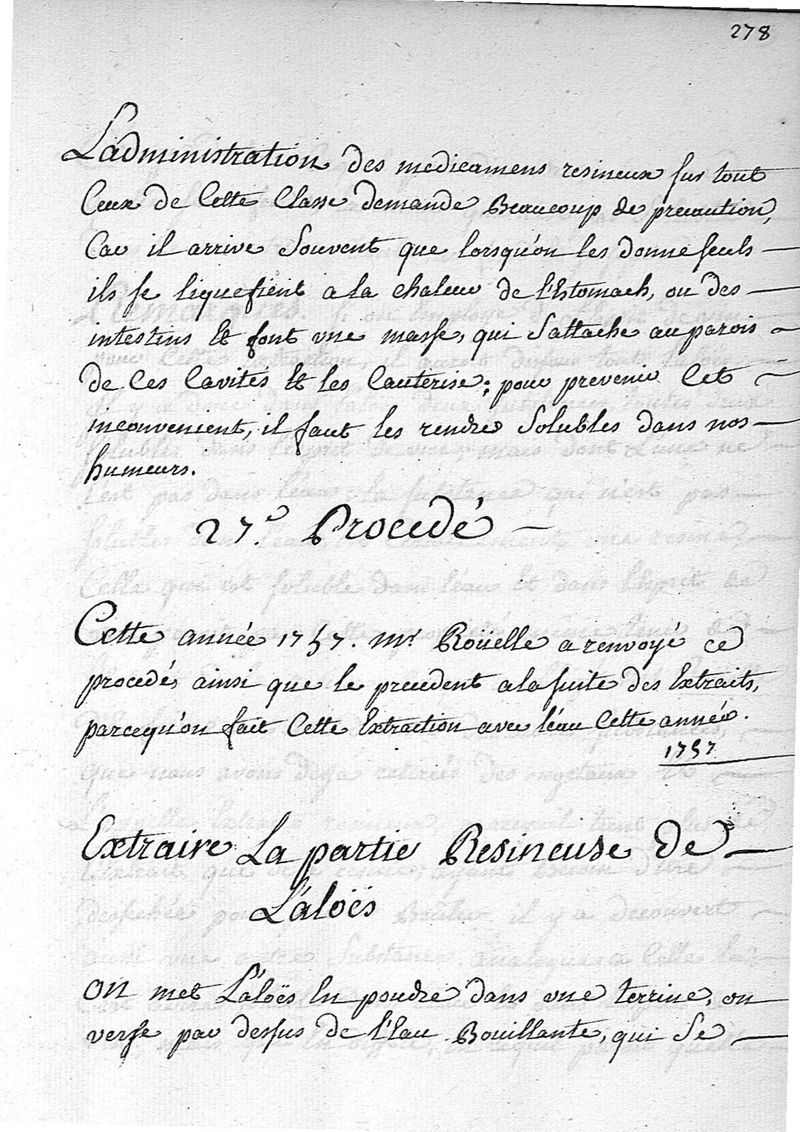 278
L'administration des medicamens resineux sur tout
Ceux de Cette Classe demande Beaucoup de precaution,
Car il arrive Souvent que lorsqu'on les donne seuls
ils se liquefient a la chaleur de l'Estomach, ou des
intestins Et font une masse, qui S'attache au parois
de Ces Cavités Et les Cauterise; pour prevenir Cet
inconvenient, il faut les rendre Solubles dans nos
humeurs.
27e Procedé
Cette année 1757. mr Roüelle a renvoyé ce
procedé, ainsi que le precedent a la suite des Extraits,
parcequ'on fait Cette Extraction avec l'eau Cette année.
1757
Extraire La partie Resineuse de
L'aloës
on met L'aloës En poudre dans une terrine, on
verse par dessus de l'Eau Bouillante, qui Se